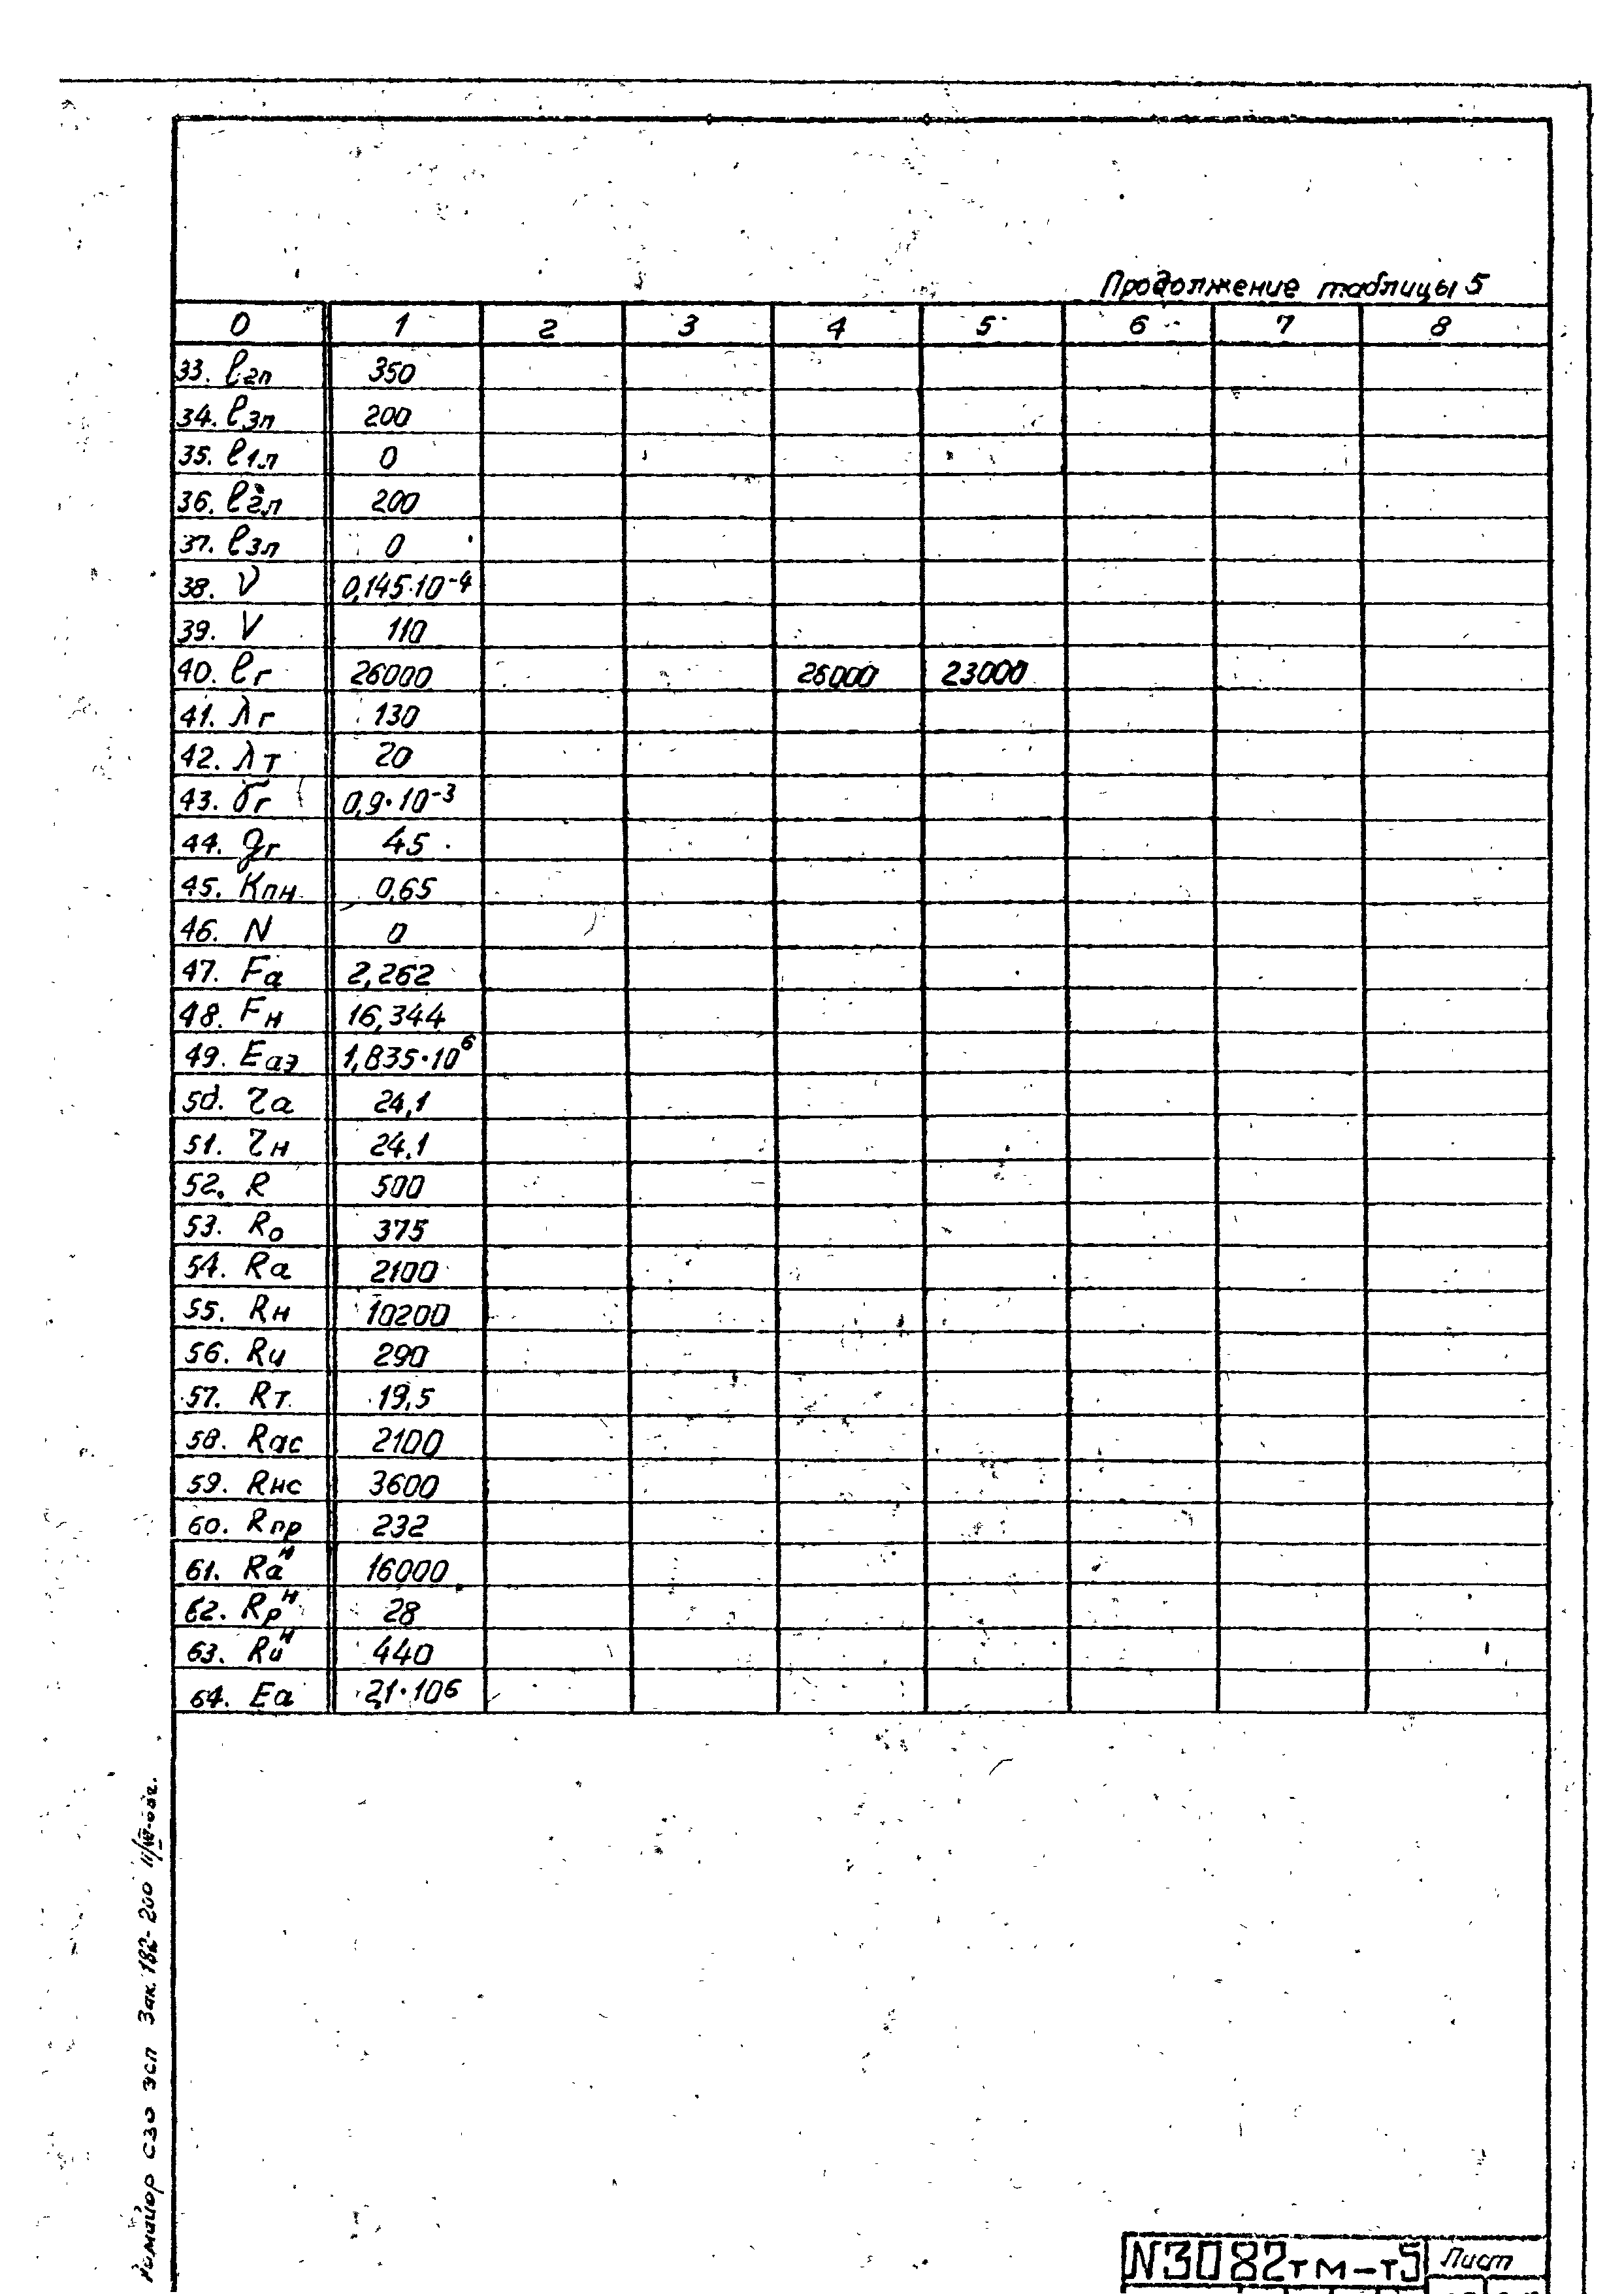 Продолжение таблицы 5
0 1 2 3 4 5 6 7 8
33. ℓ2п 350
34. ℓ3п 200
35. ℓ1л 0
36. ℓ2л 200
37. ℓ3л 0
38. ν 0,145·10⁻⁴
39. V 110
40. ℓг 26000 26000 23000
41. λг 130
42. λт 20
43. σг 0,9·10⁻³
44. gг 45
45. Кпн 0,65
46. N 0
47. Fа 2,262
48. Fн 16,344
49. Еаэ 1,835·10⁶
50. ɀа 24,1
51. ɀн 24,1
52. R 500
53. Rо 375
54. Rа 2100
55. Rн 10200
56. Rи 290
57. Rт 19,5
58. Rас 2100
59. Rнс 3600
60. Rпр 232
61. Rаᴴ 16000
62. Rрᴴ 28
63. Rиᴴ 440
64. Еа 2,1·10⁶
СЗО ЭСП Зак. 182-200
N3082тм-т5 Лист